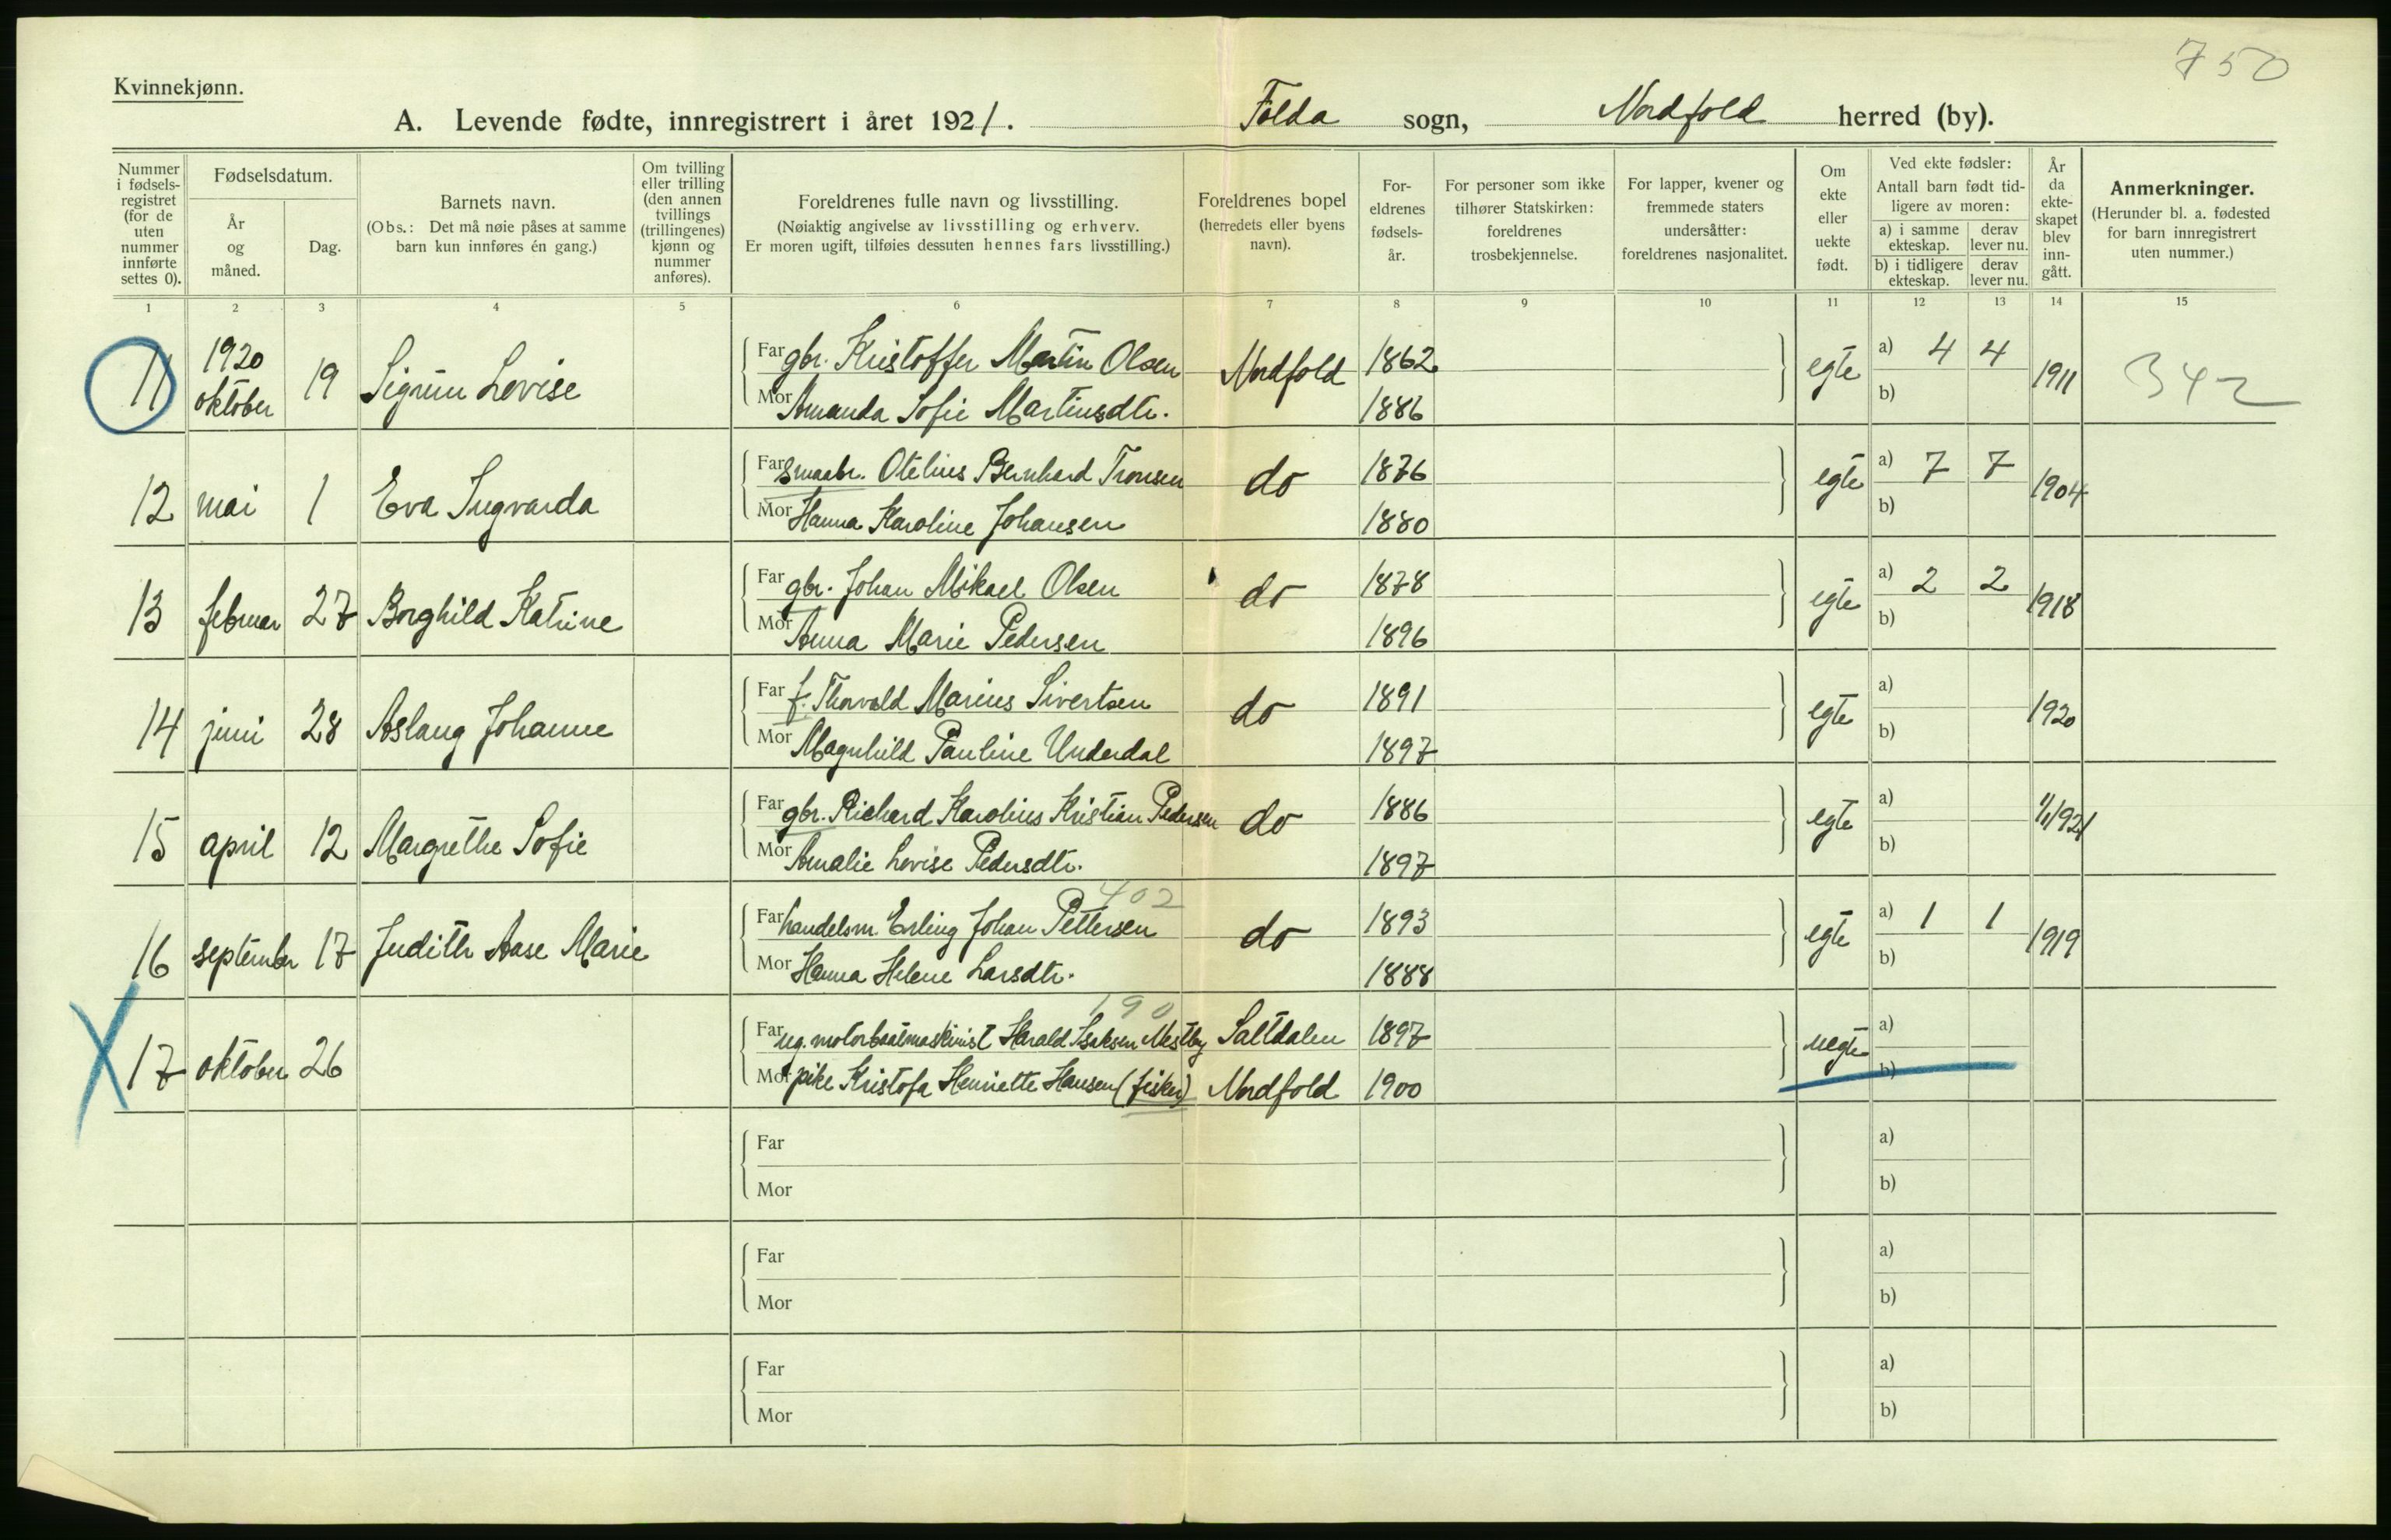 750
Kvinnekjønn.
A. Levende fødte, innregistrert i året 1921. Folda sogn, Nordfold herred (by).
Nummer i fødsels-registret (for de uten nummer innførte settes 0).
Fødselsdatum.
År og måned.
Dag.
Barnets navn.
(Obs.: Det må nøie påses at samme barn kun innføres én gang.)
Om tvilling eller trilling (den annen tvillings (trillingenes) kjønn og nummer anføres).
Foreldrenes fulle navn og livsstilling.
(Nøiaktig angivelse av livsstilling og erhverv.
Er moren ugift, tilføies dessuten hennes fars livsstilling.)
Foreldrenes bopel
(herredets eller byens navn).
For-eldrenes fødsels-år.
For personer som ikke tilhører Statskirken: foreldrenes trosbekjennelse.
For lapper, kvener og fremmede staters undersåtter: foreldrenes nasjonalitet.
Om ekte eller uekte født.
Ved ekte fødsler:
Antall barn født tid-ligere av moren:
a) i samme ekteskap.
derav lever nu.
b) i tidligere ekteskap.
derav lever nu.
År da ekte-skapet blev inn-gått.
Anmerkninger.
(Herunder bl. a. fødested for barn innregistrert uten nummer.)
1 2 3 4 5 6 7 8 9 10 11 12 13 14 15
11 1920 oktober 19 Sigrun Lovise
Far gbr. Kristoffer Martin Olsen Nordfold 1862 egte a) 4 4 1911 342
Mor Amanda Sofie Martinsdtr. 1886 b)
12 mai 1 Eva Ingvarda
Far smaabr. Otelius Bernhard Tronsen do 1876 egte a) 7 7 1904
Mor Hanna Karoline Johansen 1880 b)
13 februar 27 Borghild Katrine
Far gbr. Johan Mikael Olsen do 1878 egte a) 2 2 1918
Mor Anna Marie Pedersen 1896 b)
14 juni 28 Aslaug Johanne
Far f. Thorvald Marius Sivertsen do 1891 egte a) 1920
Mor Magnhild Pauline Underdal 1897 b)
15 april 12 Margrethe Sofie
Far gbr. Richard Karolius Kristian Pedersen do 1886 egte a) 1/1 1921
Mor Amalie Lovise Pedersdtr. 1897 b)
402
16 september 17 Judith Aase Marie
Far handelsm. Erling Johan Pettersen do 1893 egte a) 1 1 1919
Mor Hanna Helene Larsdtr. 1888 b)
190
17 oktober 26
Far ug. motorbaatmaskinist Harald Isaksen Nestby Saltdalen 1897 uegte a)
Mor pike Kristofa Henriette Hansen (fisker) Nordfold 1900 b)
Far a)
Mor b)
Far a)
Mor b)
Far a)
Mor b)